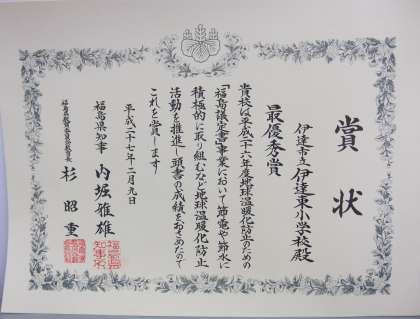 賞状
伊達市立伊達東小学校殿
最優秀賞
貴校は平成二十六年度地球温暖化防止のための
「福島議定書」事業において節電や節水に
積極的に取り組むなど地球温暖化防止
活動を推進し頭書の成績をおさめたので
これを賞します
平成二十七年二月九日
福島県知事 内堀雅雄
福島県教育委員会教育長 杉昭重